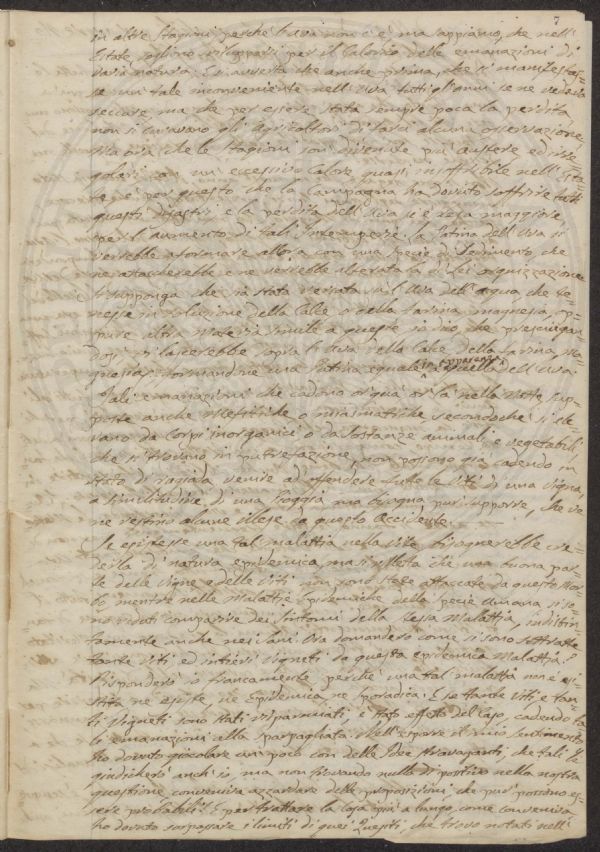 7
in altre stagioni perche l'uva non c'è, ma sappiamo, che nell'
Estate sogliono svilupparsi per il Calorico delle emanazioni di
varia natura. Si avverta che anche prima, che si manifestas-
se un tale inconveniente nell'Uva tutti gli anni se ne vedeva
seccare ma che per essere stata sempre poca la perdita
non si curavano gli Agricoltori di farci alcuna osservazione,
Ma ora che le Stagioni son divenute più austere ed irre-
golari con un eccessivo Calore quasi insoffribile nell'Esta-
te, è per questo che la Campagna ha dovuto soffrire tutti
questi disastri e la perdita dell'Uva si è resa maggiore
per l'aumento di tali Intemperie. La Patina dell'Uva si
verrebbe a formare allora con una specie di Sedimento, che
ne attaccherebbe e ne verrebbe alterata la di Lei organizzazione
Si supponga che sia stata versata su l'Uva dell'acqua, che te-
nesse in soluzione della Calce o della farina, magnesia, op-
pure altra materia simile a queste io dico, che prosciugan-
dosi vi lascerebbe sopra l'Uva della Calce, della farina, ma-
gnesia, formandone una Patina eguale in apparenza a quella dell'Uva.
Tali emanazioni che cadono or quà or là nella notte sup-
poste anche mefitiche o miasmatiche secondochè si ele-
vano da Corpi inorganici o da Sostanze animali, e vegetabili,
che si trovano in putrefazione, non possono già cadendo in
stato di rugiada venire ad offendere tutte le Viti di una Vigna,
a similitudine d'una Pioggia ma bisogna pur supporre, che ve
ne restino alcune illese da questo Accidente.
Se esistesse una tal malattia nella Vite bisognerebbe cre-
derla di natura epidemica, ma si rifletta che una buona par-
te delle Vigne e delle Viti non sono state attaccate da questo mor-
bo mentre nelle Malattie Epidemiche della specie umana si so-
no veduti comparire dei Sintomi della stessa Malattia, indistin-
tamente anche nei sani. Ora domanderò come si sono sottratte
tante Viti ed intieri Vigneti da questa epidemica Malattia?
Risponderò io francamente perchè una tal malattia non è esi-
stita, ne esiste, ne Epidemica, ne sporadica: E se tante Viti, e tan-
ti Vigneti sono stati risparmiati, è stato effetto del Caso, cadendo ta-
li emanazioni alla sparpagliata. Nell'esporre il mio sentimento
ho dovuto giocolare un poco con delle Idee stravaganti, che tali le
giudicherò anch'io, ma non trovando nulla di positivo nella nostra
questione conveniva azzardare delle proposizioni che pur possono es-
sere probabili. E per trattare la Cosa più a lungo come conveniva
ho dovuto sorpassare i limiti di quei Quesiti, che trovo notati nell'